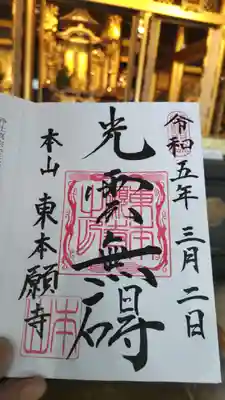 令和五年三月二日
光雲無碍
本山東本願寺